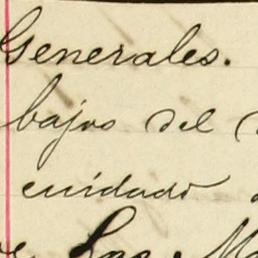 Generales.
bajos del
cuidado
Las